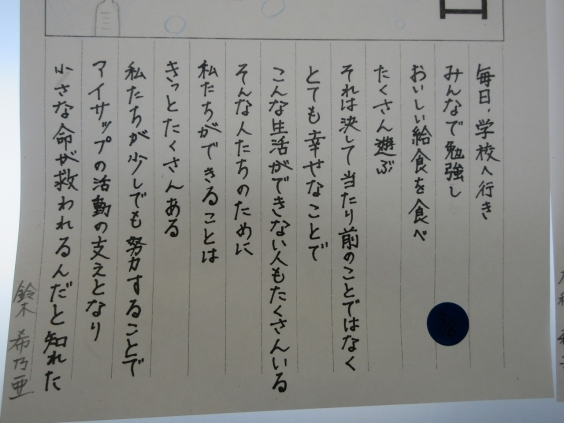 毎日、学校へ行き
みんなで勉強し
おいしい給食を食べ
たくさん遊ぶ
それは決して当たり前のことではなく
とても幸せなことで
こんな生活ができない人もたくさんいる
そんな人たちのために
私たちができることは
きっとたくさんある
私たちが少しでも努力することで
マイサップの活動の支えとなり
小さな命が救われるんだと知れた
鈴木 希乃亜